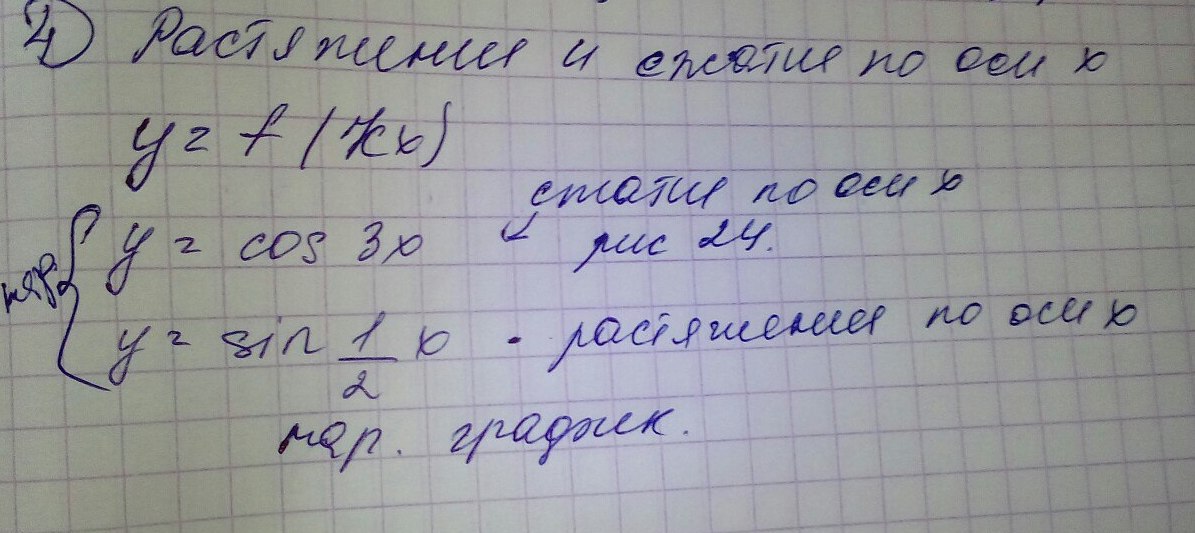 4) Растяжения и сжатие по оси x
y = f (kx)
сжатие по оси x
y = cos 3x рис 24.
y = sin 1/2 x - растяжения по оси x
нар. график.